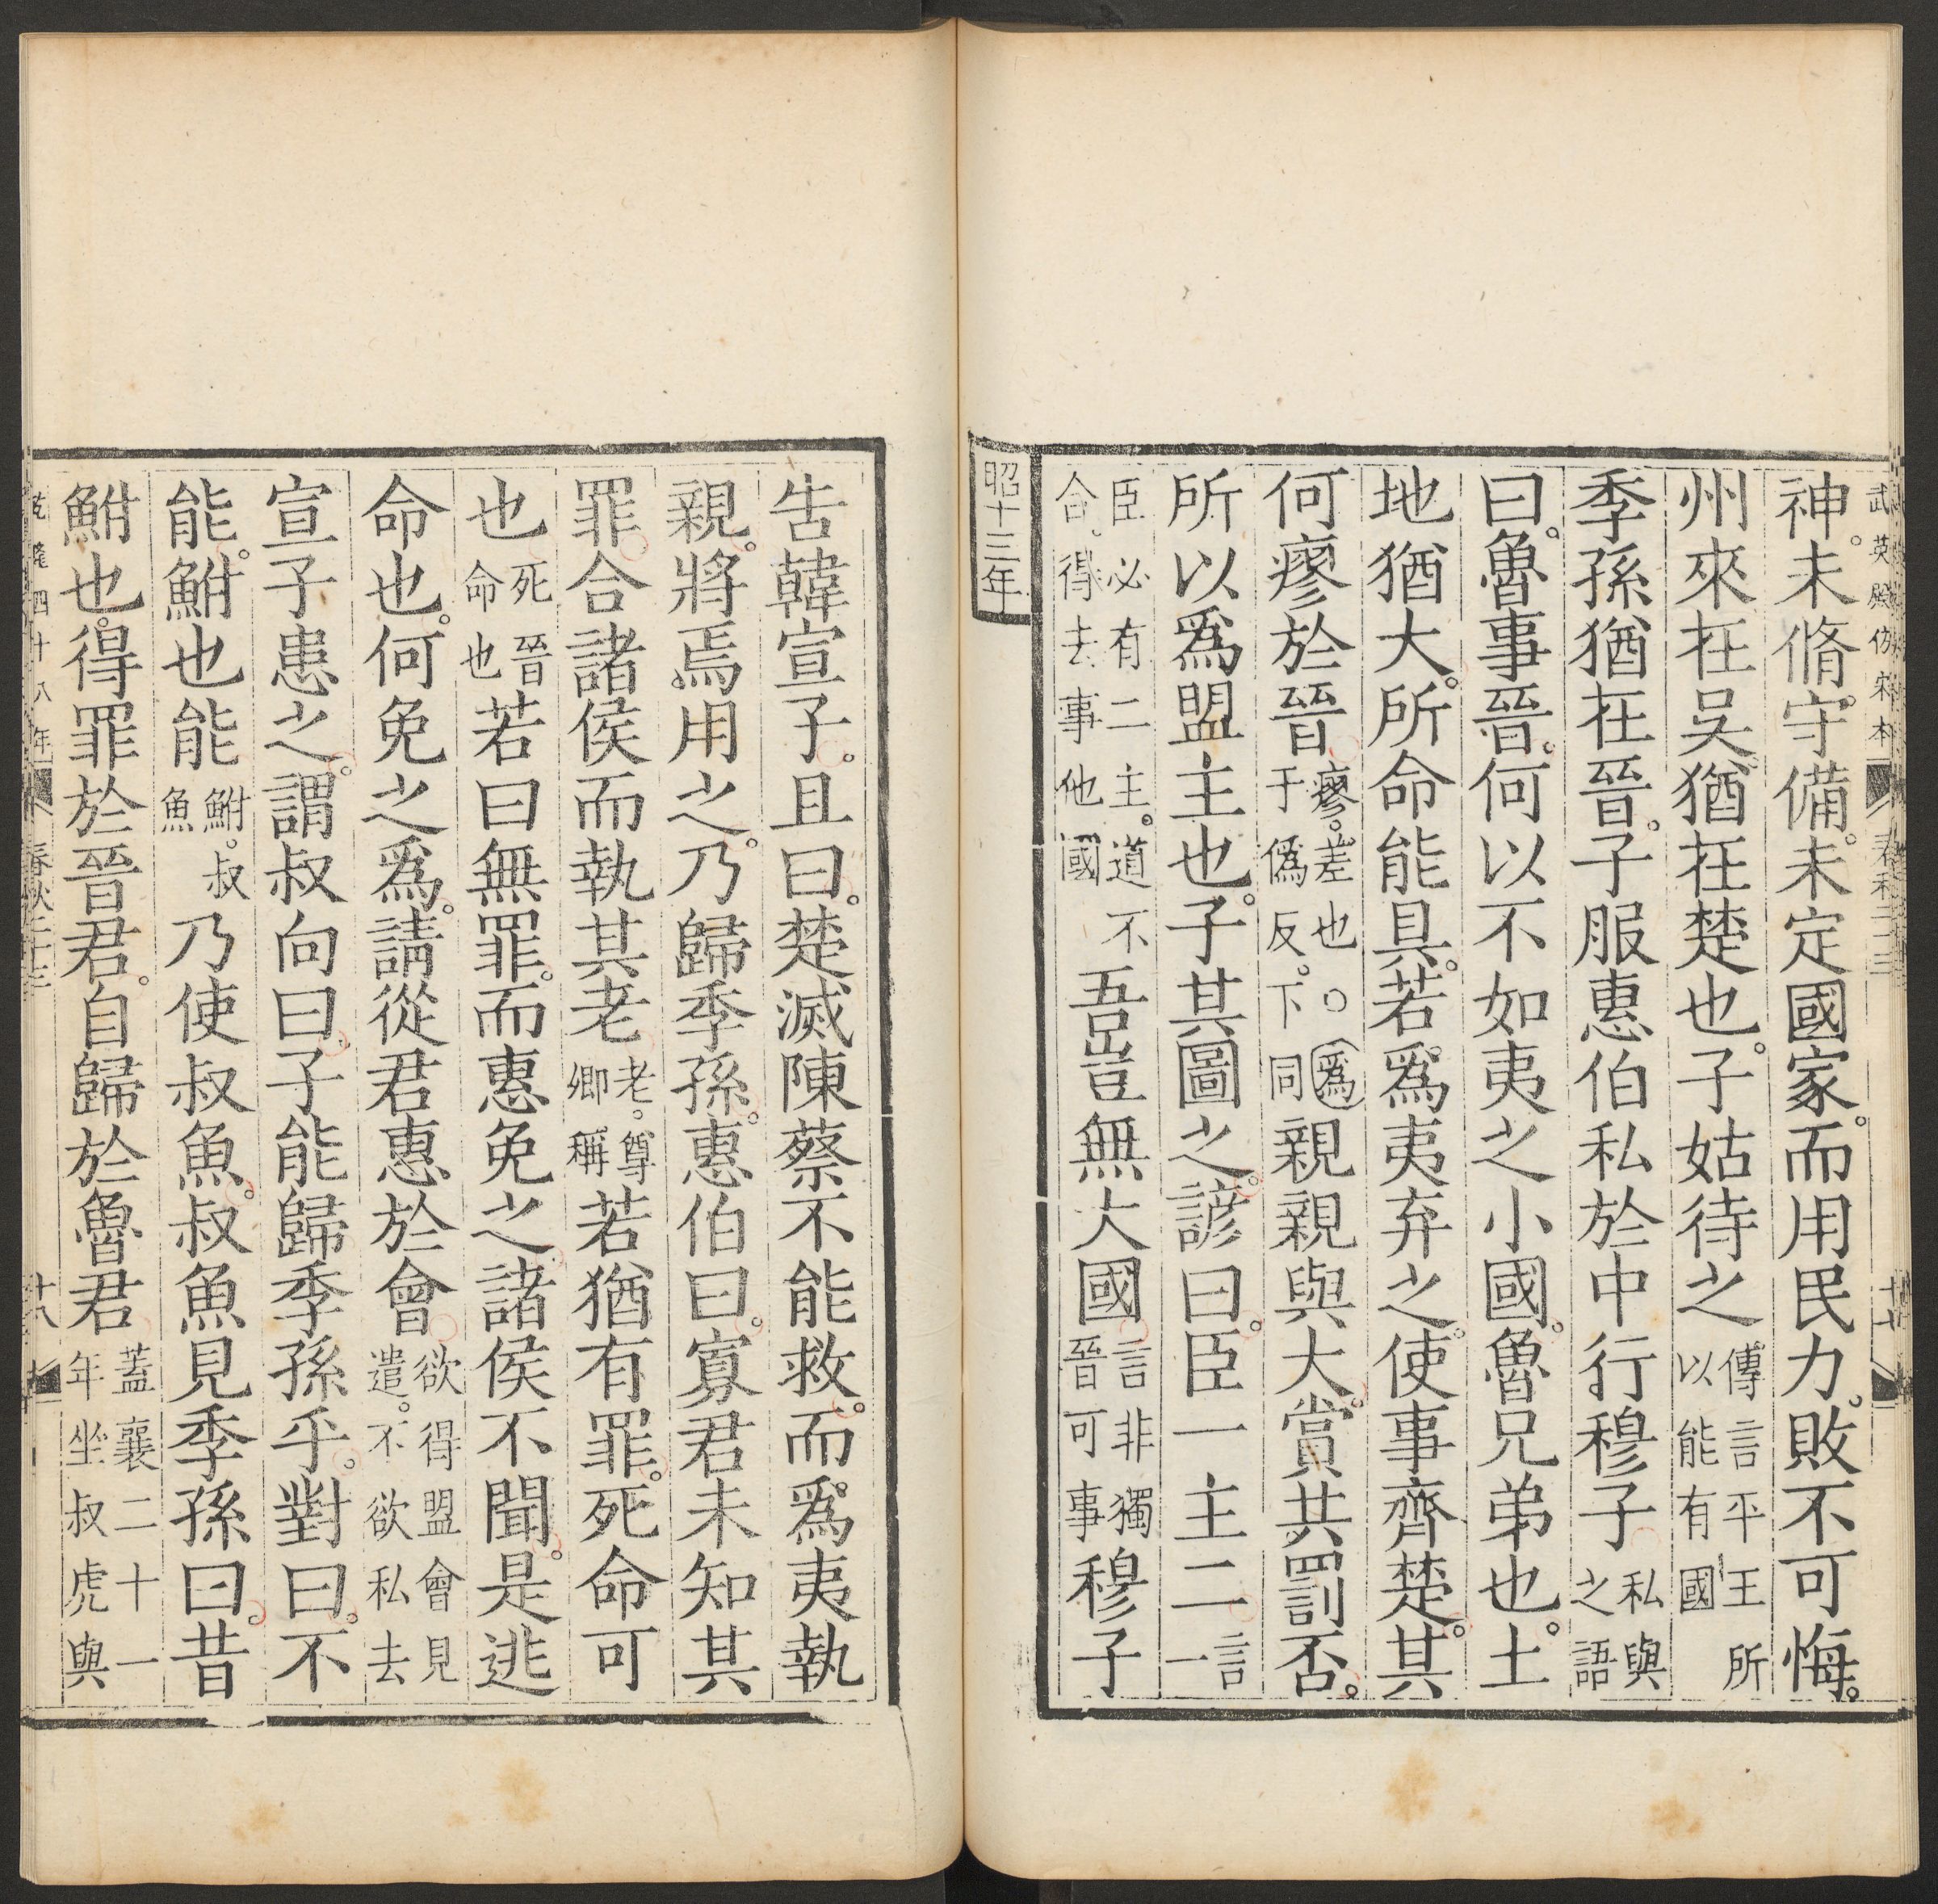 武英殿仿宋本
春秋二十三
十七
神。未脩守備。未定國家。而用民力。敗不可悔。
州來在吳。猶在楚也。子姑待之傳言平王所以能有國
季孫猶在晉。子服惠伯私於中行穆子私與之語
曰。魯事晉。何以不如夷之小國。魯兄弟也。土
地猶大。所命能具。若爲夷弃之。使事齊楚。其
何瘳於晉瘳。差也。○爲于僞反。下同親親與大。賞共罰否。
所以爲盟主也。子其圖之。諺曰。臣一主二言一
臣必有二主。道不合。得去事他國吾豈無大國言非獨晉可事穆子
昭十三年
告韓宣子。且曰。楚滅陳蔡不能救。而爲夷執
親。將焉用之。乃歸季孫。惠伯曰。寡君未知其
罪。合諸侯而執其老老。尊卿稱若猶有罪。死命可
也死晉命也若曰無罪。而惠免之。諸侯不聞。是逃
命也。何免之爲。請從君惠於會欲得盟會見遣。不欲私去
宣子患之。謂叔向曰。子能歸季孫乎。對曰。不
能。鮒也能鮒。叔魚乃使叔魚。叔魚見季孫曰。昔
鮒也得罪於晉君。自歸於魯君蓋襄二十一年坐叔虎與
乾隆四十八年
春秋二十三
十八